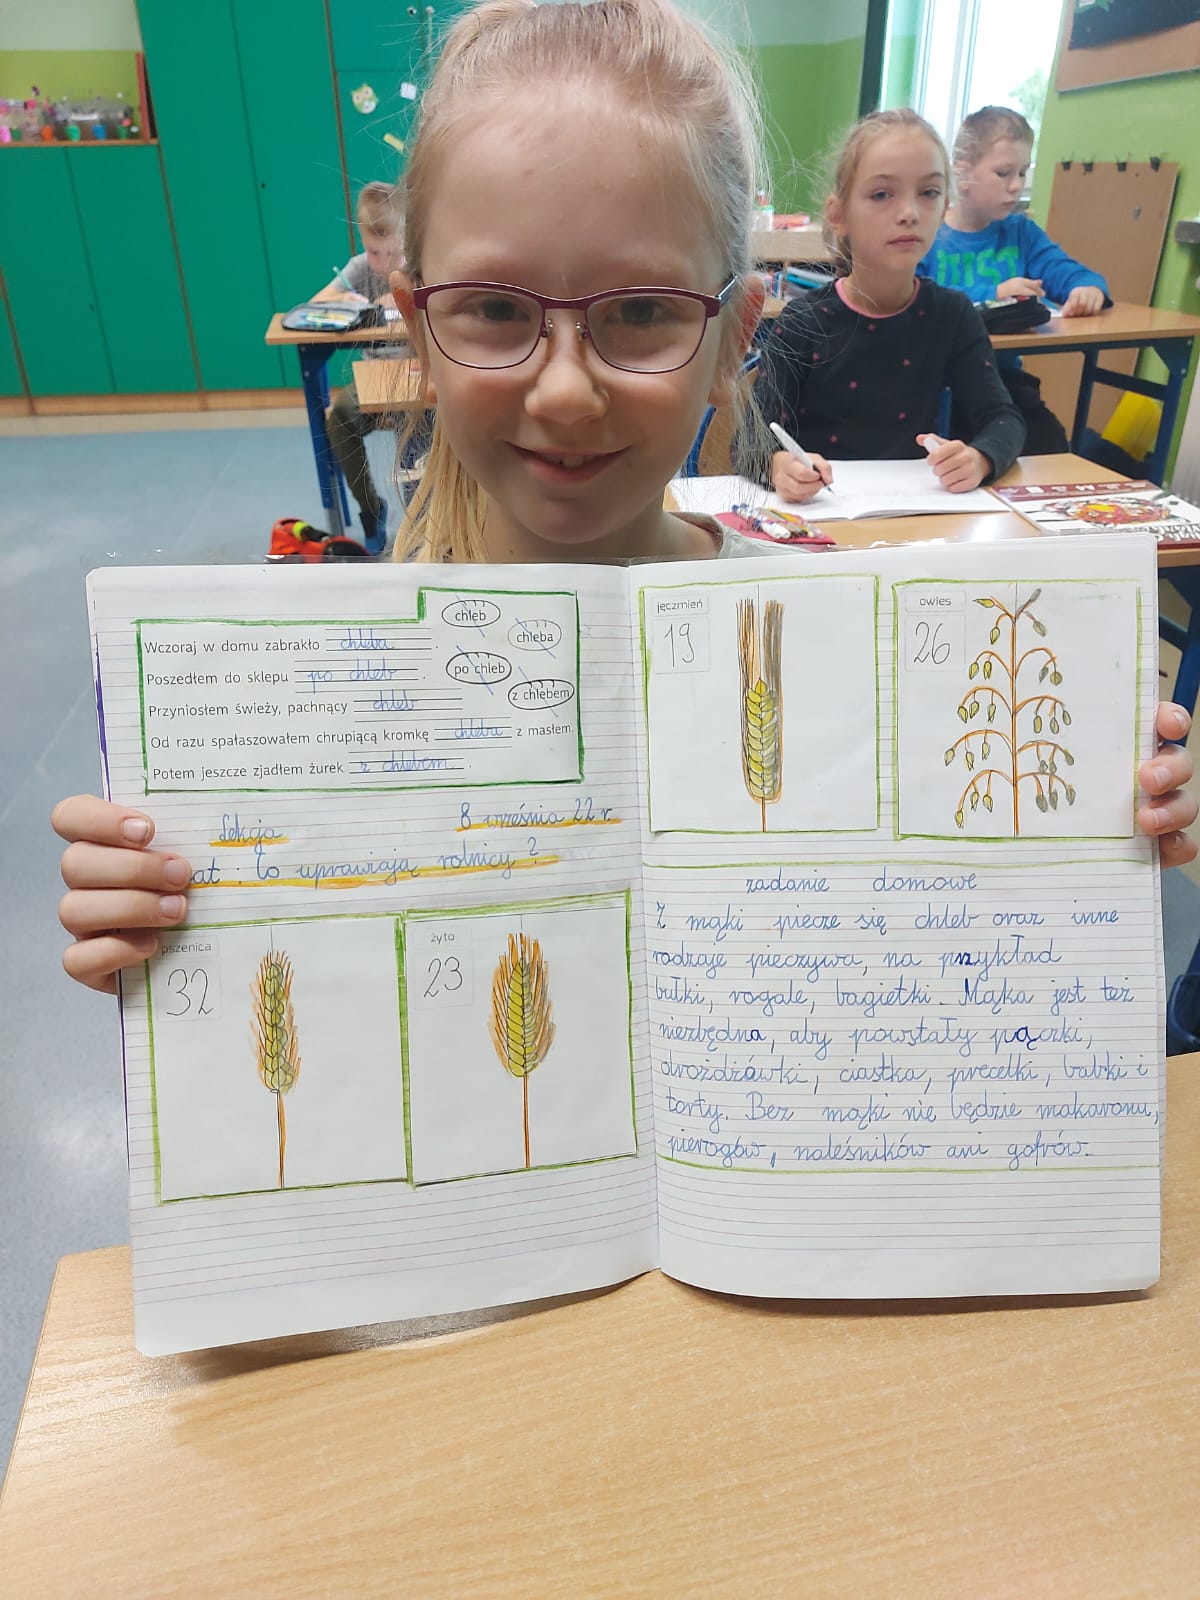 chleb
chleba
po chleb
z chlebem
Wczoraj w domu zabrakło chleba.
Poszedłem do sklepu po chleb.
Przyniosłem świeży, pachnący chleb
Od razu spałaszowałem chrupiącą kromkę chleba z masłem.
Potem jeszcze zjadłem żurek z chlebem.
Lekcja 8 września 22 r.
at: Co uprawiają rolnicy?
pszenica
32
żyto
23
jęczmień
19
owies
26
zadanie domowe
Z mąki piecze się chleb oraz inne
rodzaje pieczywa, na przykład
bułki, rogale, bagietki. Mąka jest też
niezbędna, aby powstały pączki,
drożdżówki, ciastka, precelki, babki i
torty. Bez mąki nie będzie makaronu,
pierogów, naleśników ani gofrów.